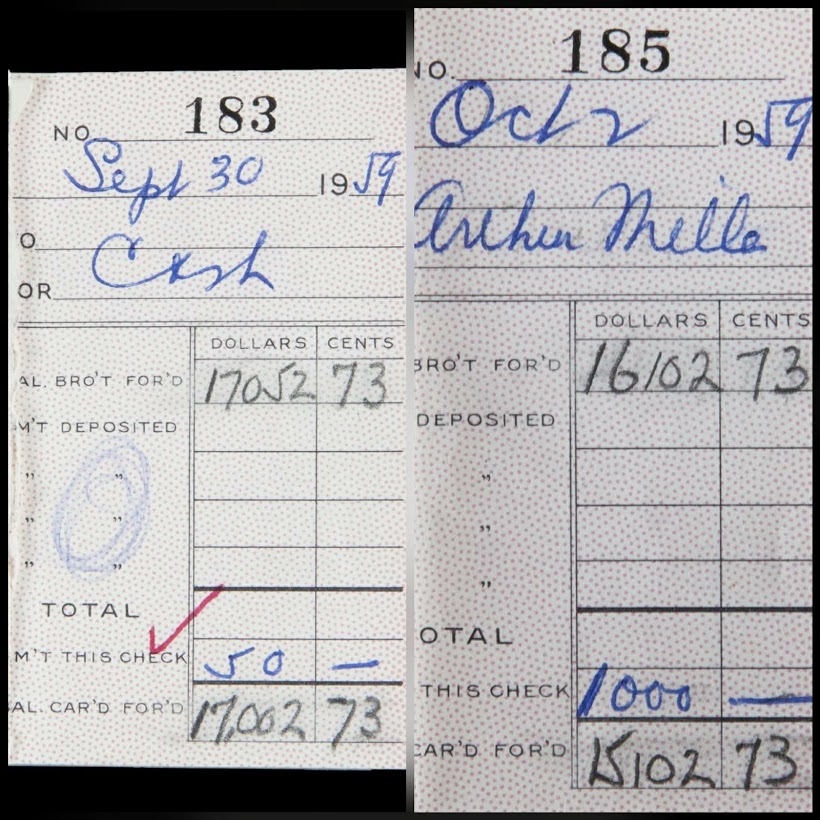 NO. 183
Sept 30 1959
O Cash
OR
DOLLARS CENTS
AL. BRO'T FOR'D 17052 73
M'T DEPOSITED
" "
" "
" "
TOTAL
M'T THIS CHECK 50 —
AL. CAR'D FOR'D 17,002 73
NO. 185
Oct 2 1959
Arthur Mille
DOLLARS CENTS
BRO'T FOR'D 16102 73
DEPOSITED
"
"
"
OTAL
THIS CHECK 1000 —
CAR'D FOR'D 15102 73